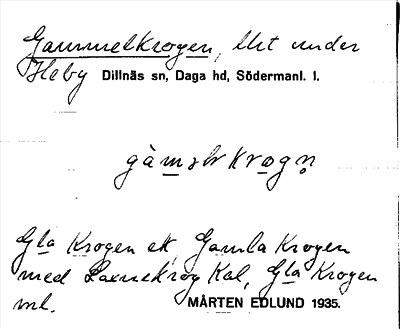 Gammelkrogen, lht under
Heby Dillnäs sn, Daga hd, Södermanl. l.
gàməlvkrωgn̥
Gla Krogen ek, Gamla Krogen
med Laxnekrog Kal, Gla Krogen
ml. MÅRTEN EDLUND 1935.